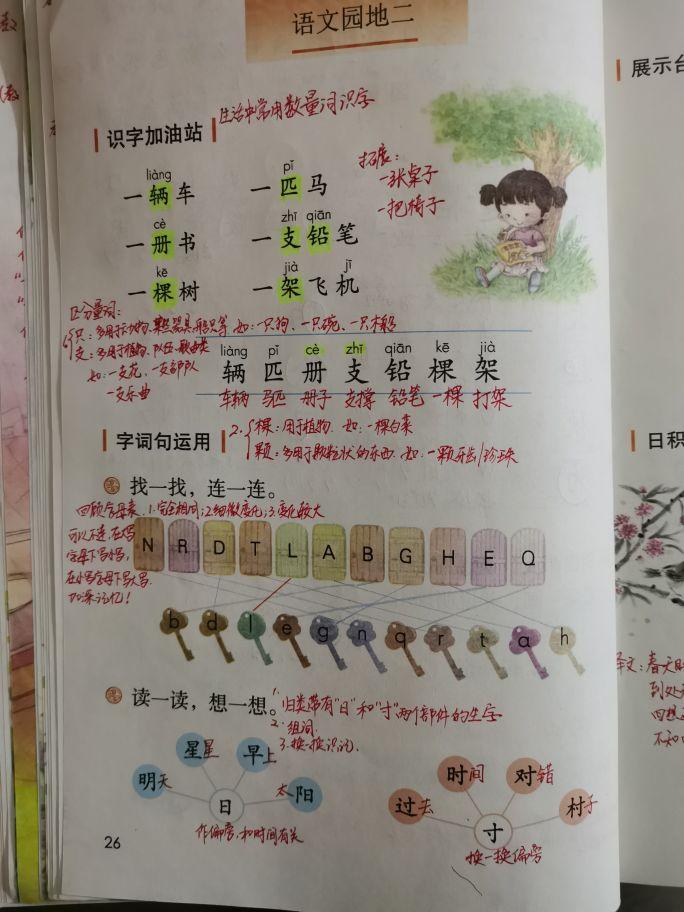 语文园地二
识字加油站
生活中常用数量词识字
liàng pǐ
一辆车 一匹马
cè zhī qiān
一册书 一支铅笔
kē jià jī
一棵树 一架飞机
拓展：
一张桌子
一把椅子
区分量词：
只：多用于动物、某些器具、船只等 如：一只狗、一只碗、一只木船
支：多用于植物、队伍、歌曲类
如：一支花、一支部队
一支乐曲
liàng pǐ cè zhī qiān kē jià
辆 匹 册 支 铅 棵 架
车辆 马匹 册子 支撑 铅笔 一棵 打架
字词句运用
2. 棵：用于植物 如：一棵白菜
颗：多用于颗粒状的东西 如：一颗牙齿/珍珠
找一找，连一连。
回顾字母表 1.完全相同；2.细微变化；3.变化较大
可以不连，在大写
字母下写小写，
在小写字母下写大写
加深记忆！
N R D T L A B G H E Q
b d l e g n q r t a h
读一读，想一想。
1. 归类带有"日"和"寸"两个部件的生字
2. 组词
3. 换一换识记.
明天 星星 早上 太阳
日
作偏旁，和时间有关
过去 时间 对错 村子
寸
换一换偏旁
26
展示台
日积
译文：春天
到处
回想
不知